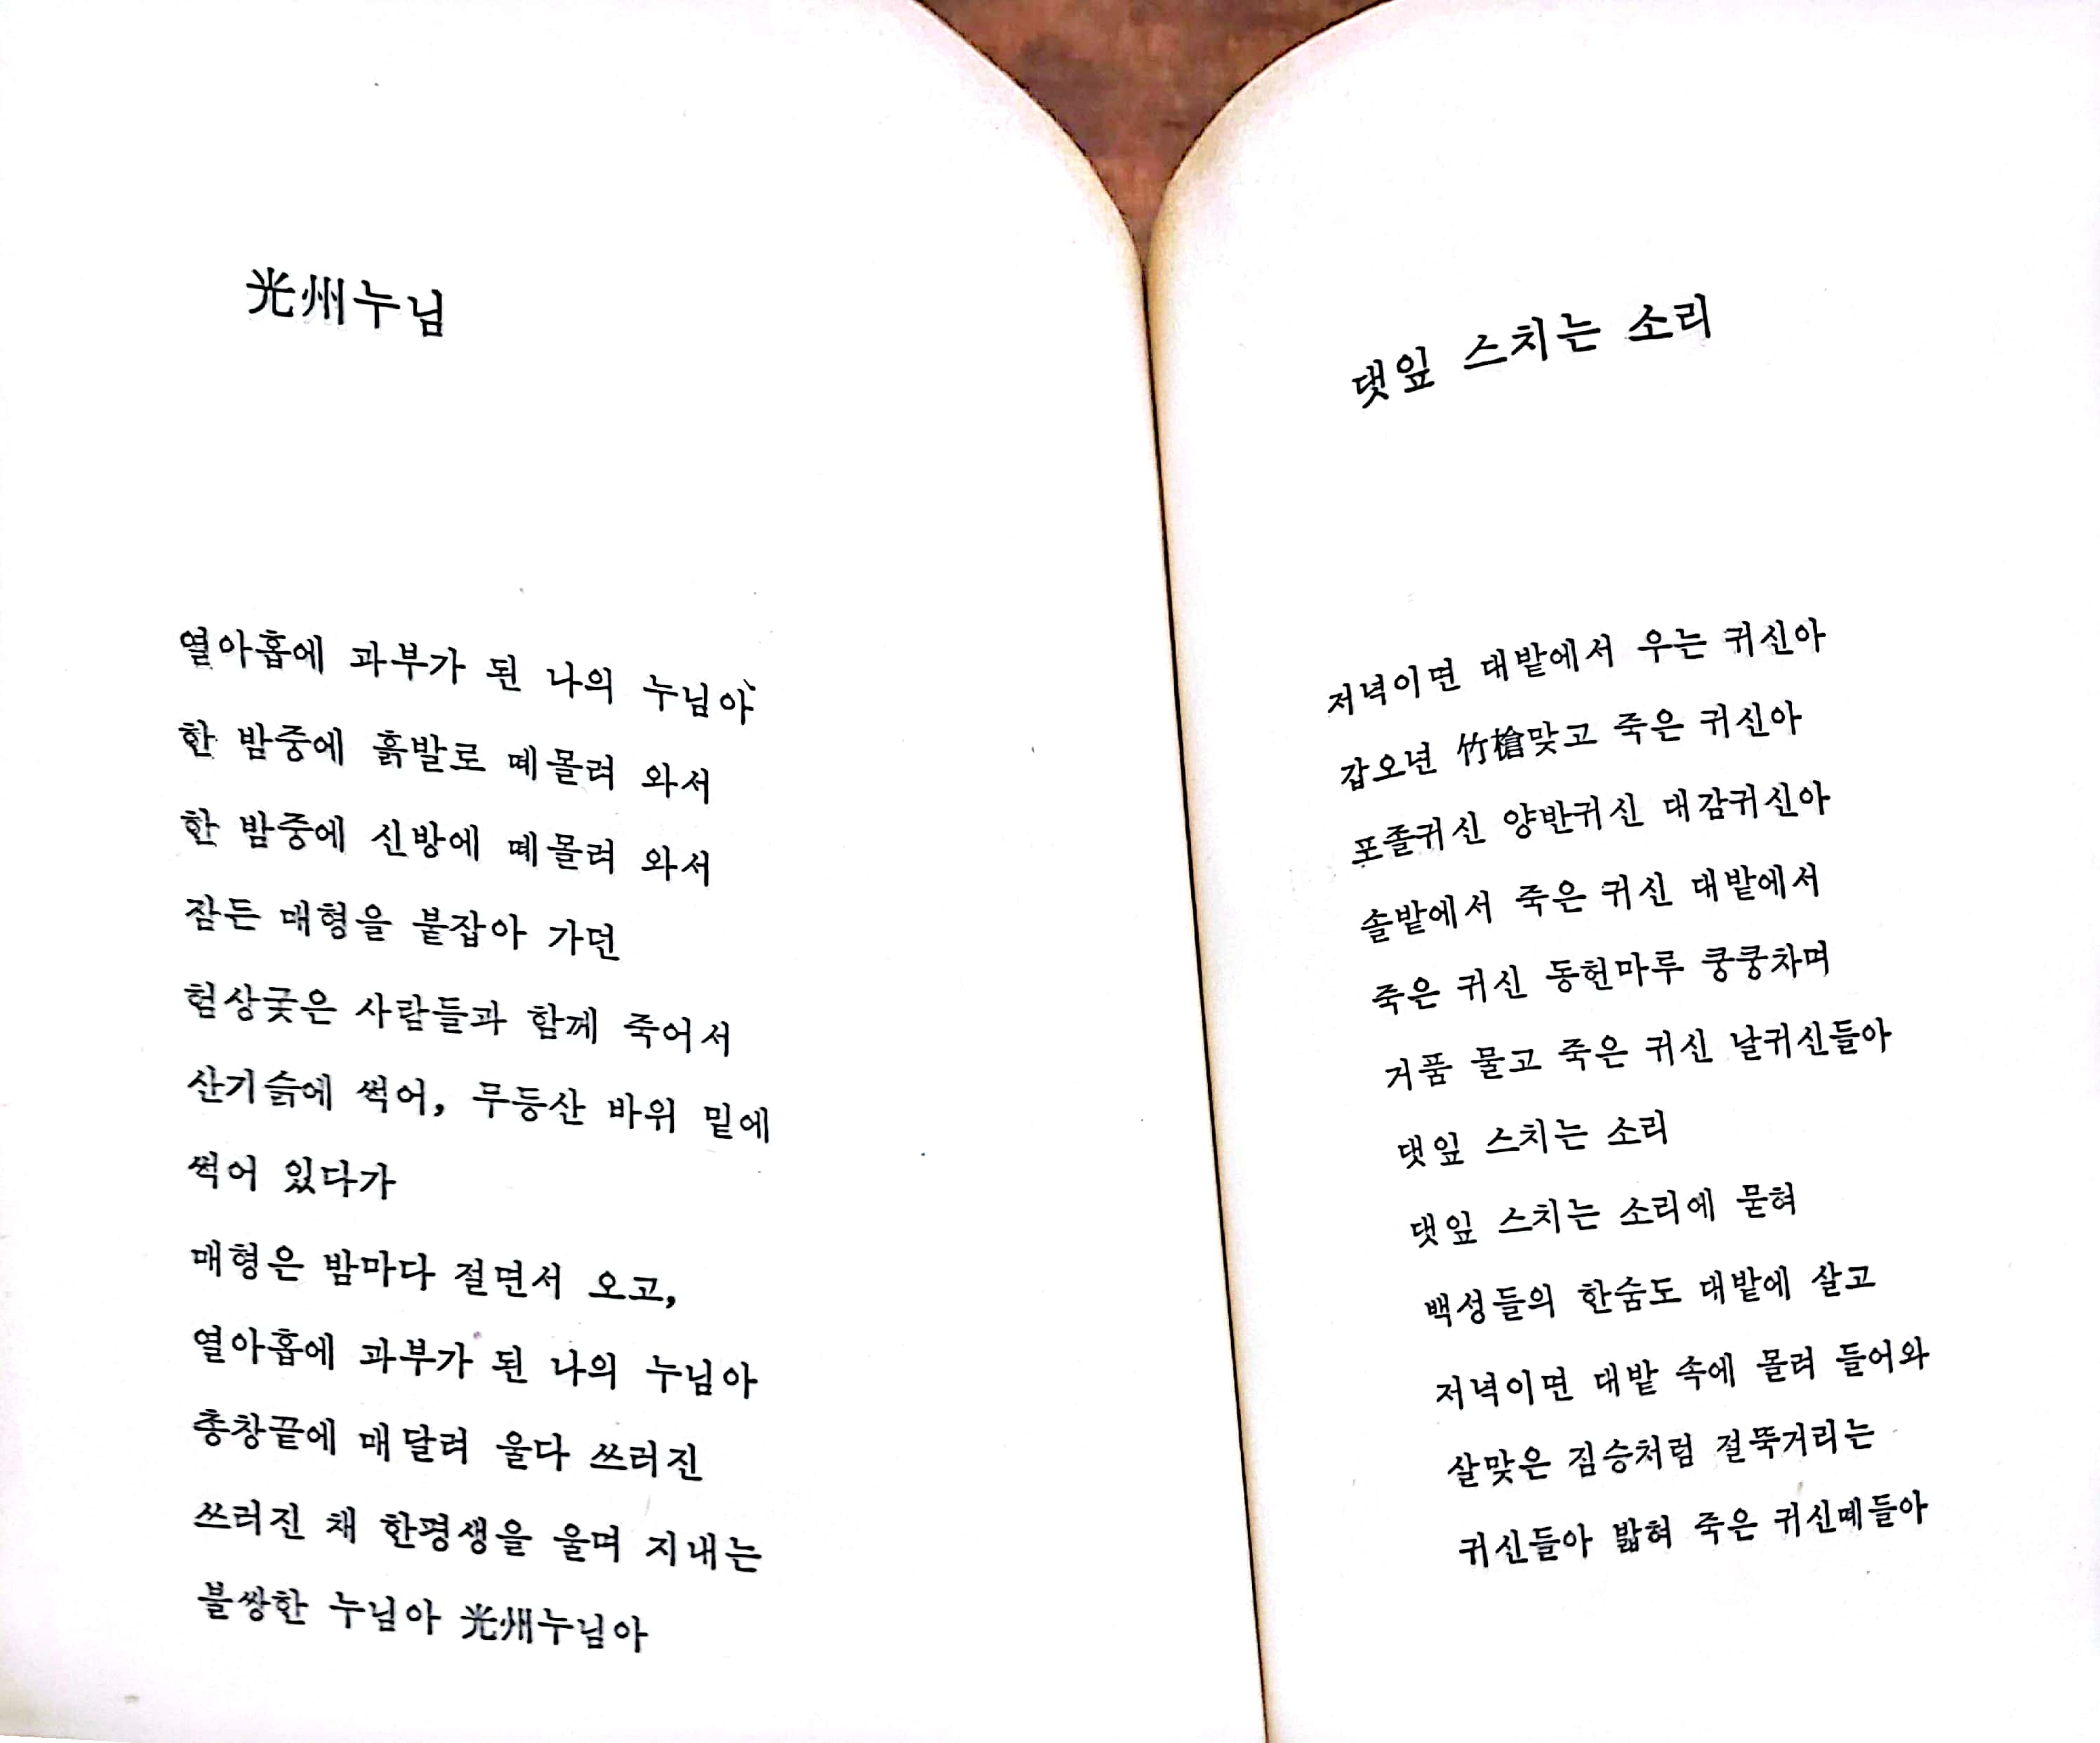 光州누님
열아홉에 과부가 된 나의 누님아
한 밤중에 흙발로 떼몰려 와서
한 밤중에 신방에 떼몰려 와서
잠든 매형을 붙잡아 가던
험상궂은 사람들과 함께 죽어서
산기슭에 썩어, 무등산 바위 밑에
썩어 있다가
매형은 밤마다 절면서 오고,
열아홉에 과부가 된 나의 누님아
총창끝에 매달려 울다 쓰러진
쓰러진 채 한평생을 울며 지내는
불쌍한 누님아 光州누님아
댓잎 스치는 소리
저녁이면 대밭에서 우는 귀신아
갑오년 竹槍맞고 죽은 귀신아
포졸귀신 양반귀신 대감귀신아
솔밭에서 죽은 귀신 대밭에서
죽은 귀신 동헌마루 쿵쿵차며
거품 물고 죽은 귀신 날귀신들아
댓잎 스치는 소리
댓잎 스치는 소리에 묻혀
백성들의 한숨도 대밭에 살고
저녁이면 대밭 속에 몰려 들어와
살맞은 짐승처럼 절뚝거리는
귀신들아 밟혀 죽은 귀신떼들아